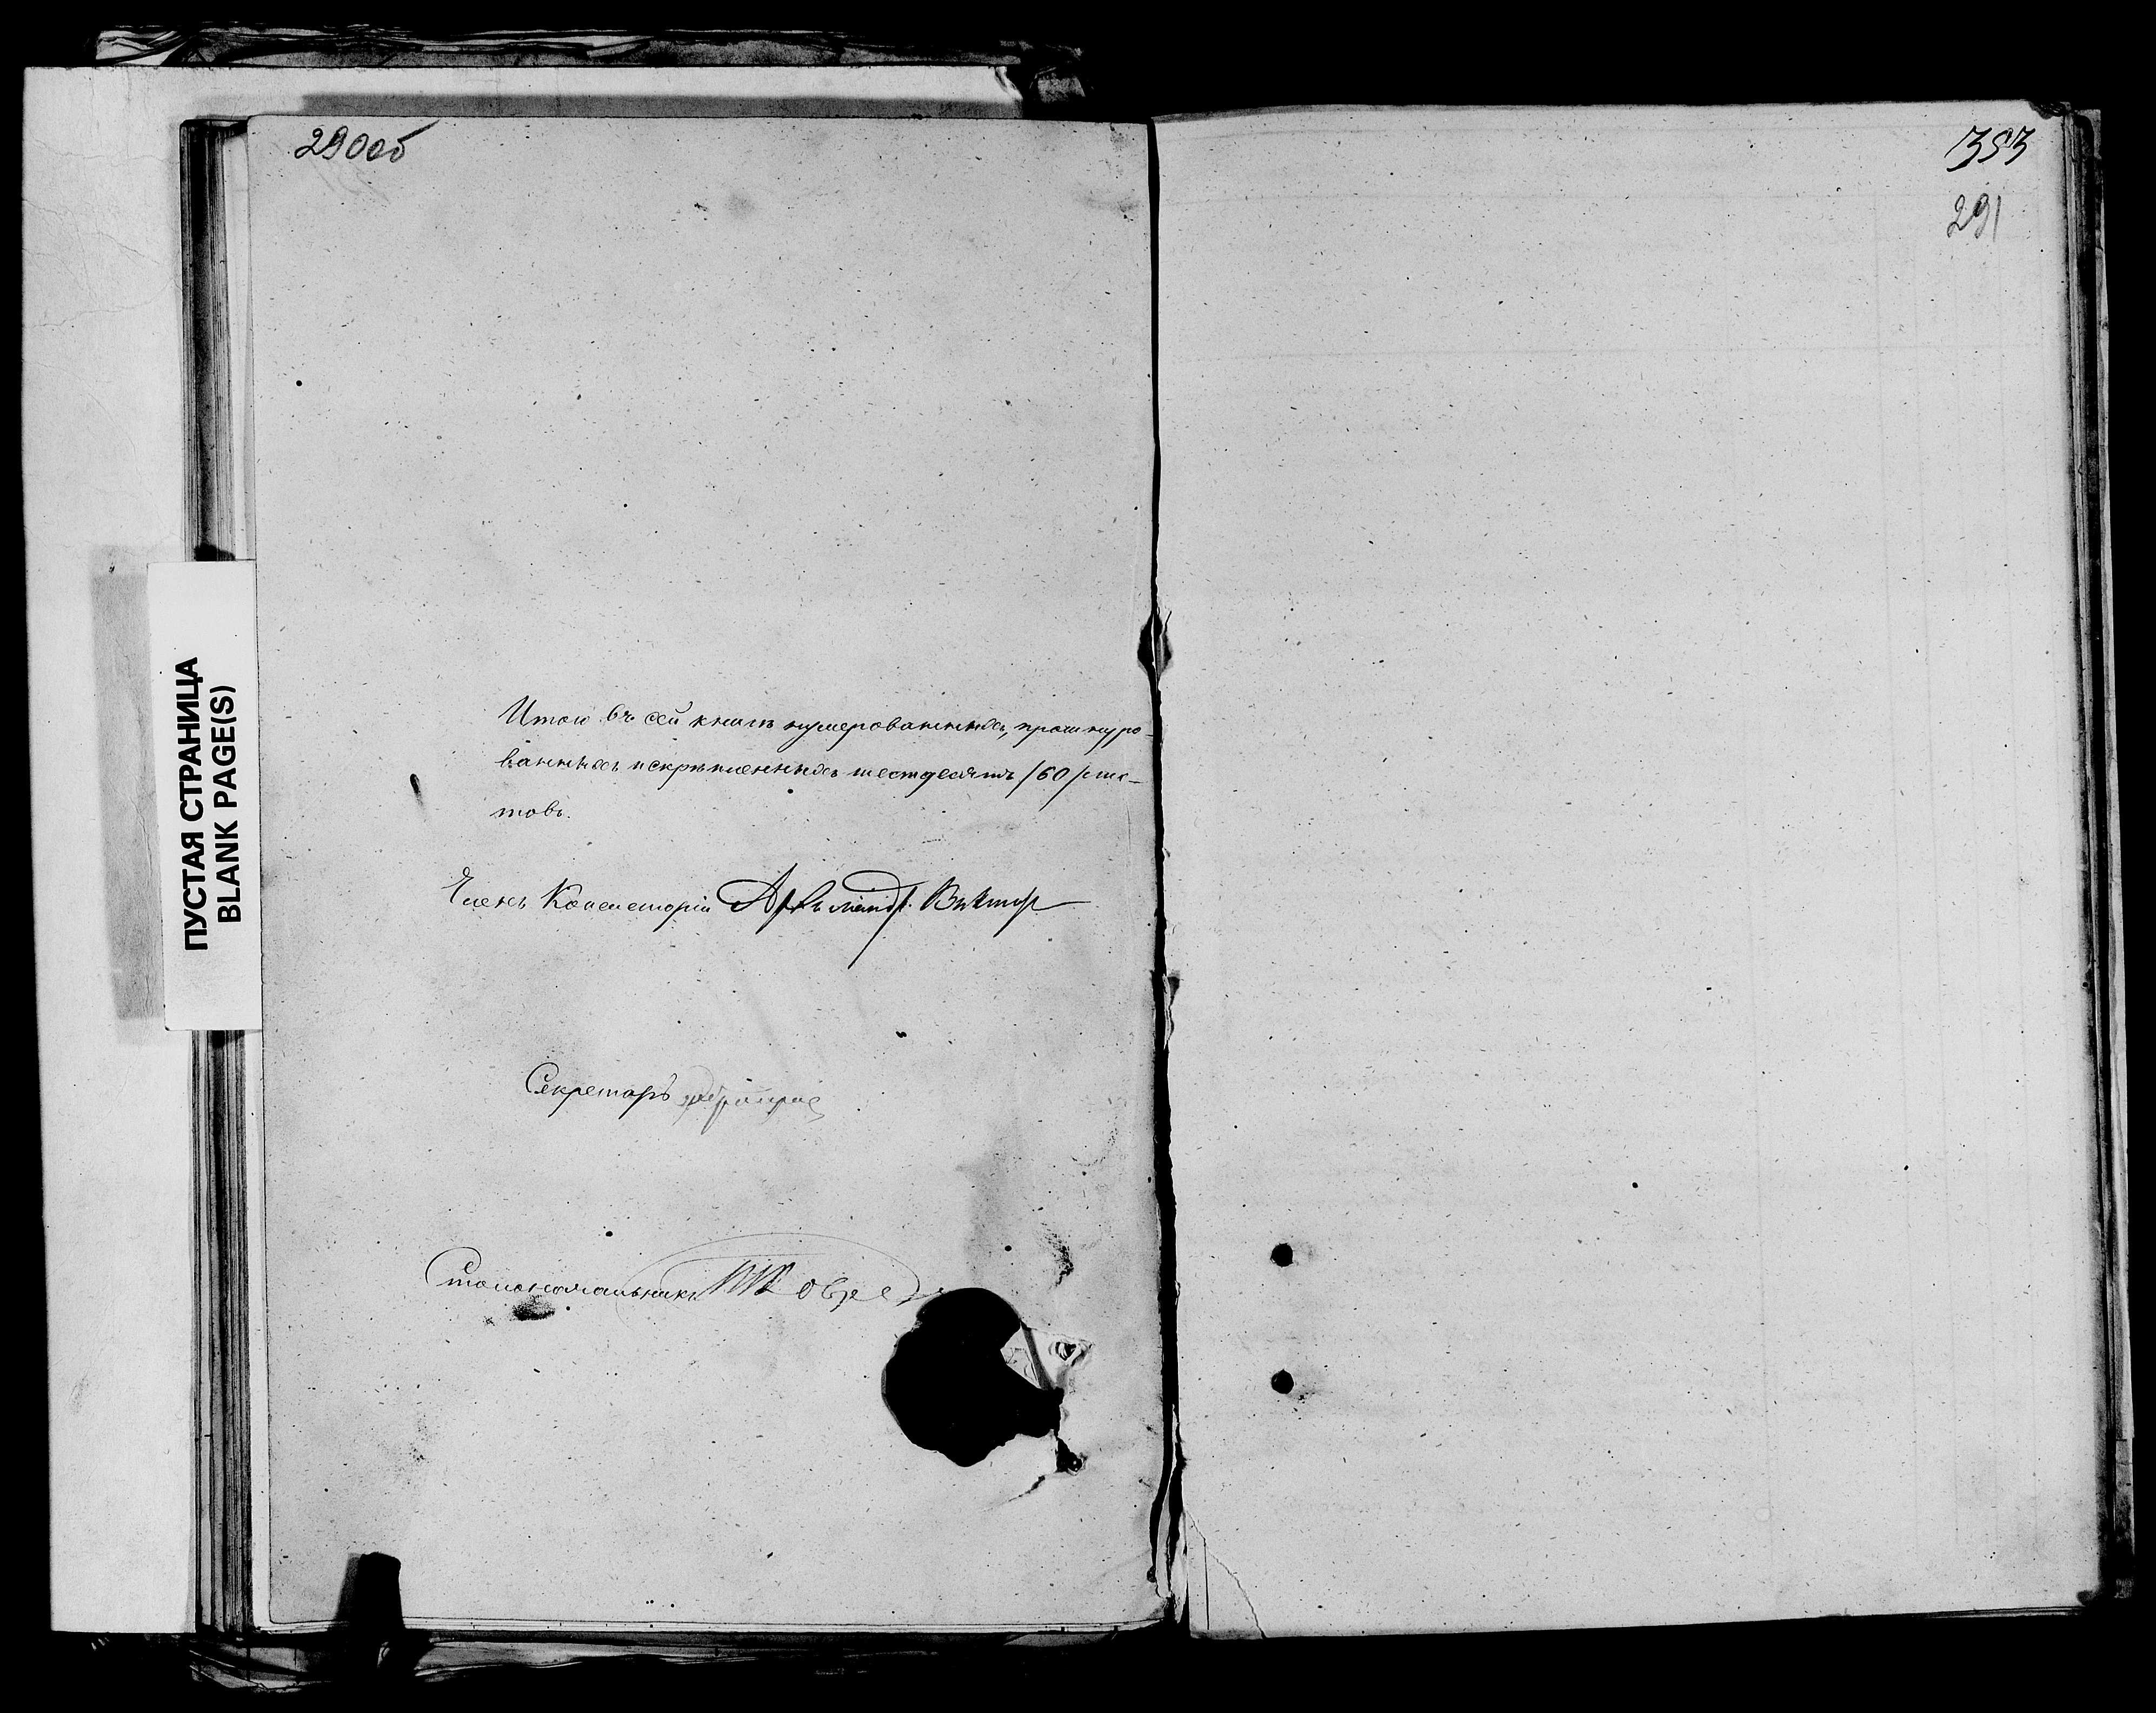 290об
353
291
ПУСТАЯ СТРАНИЦА
BLANK PAGE(S)
Итого въ сей книгѣ нумерованныхъ, прошнуро-
ванныхъ и скрѣпленныхъ шестдесятъ /60/ лис-
товъ.
Членъ Консисторіи Архимандр. Викторъ
Секретарь
Столоначальникъ